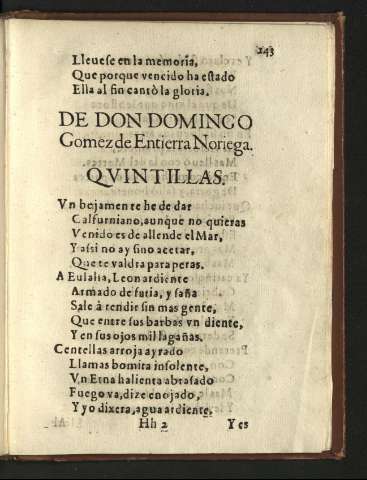 143
Lleuese en la memoria,
Que porque vencido ha estado
Ella al fin cantò la gloria.
DE DON DOMINGO
Gomez de Entierra Noriega.
QVINTILLAS.
Vn bejamen te he de dar
Calfurniano, aunque no quieras
Venido es de allende el Mar,
Y assi no ay sino acetar,
Que te valdra para peras.
A Eulalia, Leon ardiente
Armado de furia, y saña
Sale à rendir sin mas gente,
Que entre sus barbas vn diente,
Y en sus ojos mil lagañas.
Centellas arroja ayrado
Llamas bomita insolente,
Vn Etna halienta abrasado
Fuego va, dize enojado,
Y yo dixera, agua ardiente,
Hh 2 Y es